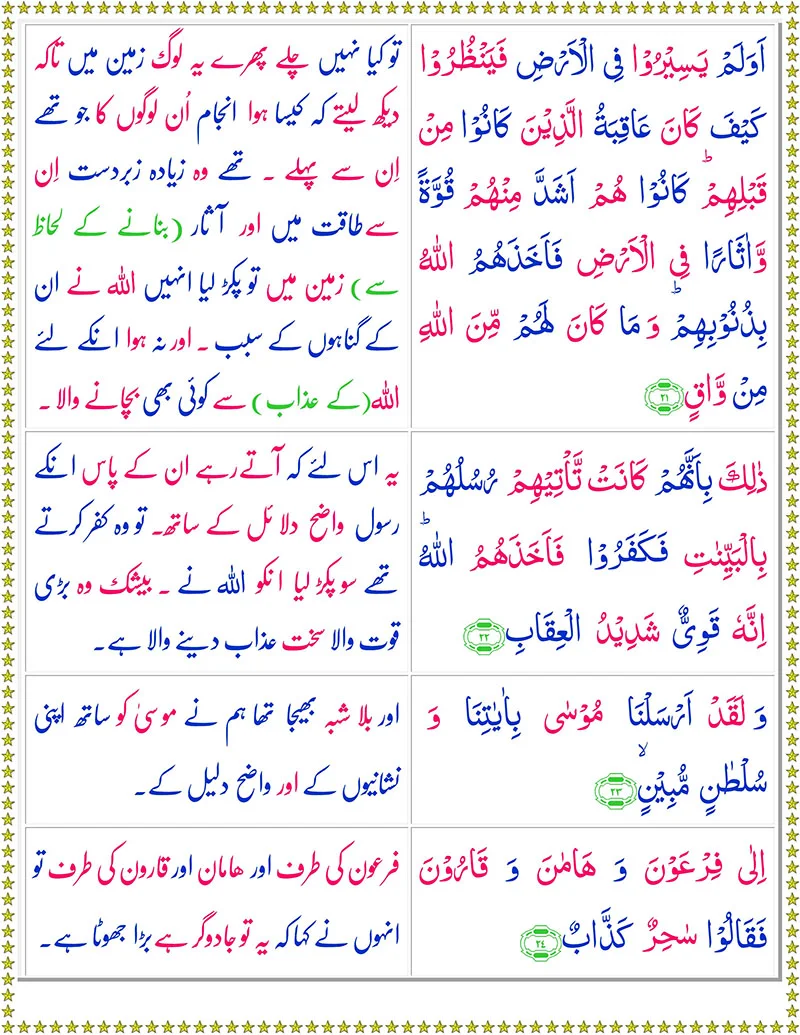 اَوَلَمْ يَسِيْرُوْا فِى الْاَرْضِ فَيَنْظُرُوْا
كَيْفَ كَانَ عَاقِبَةُ الَّذِيْنَ كَانُوْا مِنْ
قَبْلِهِمْ ؕ كَانُوْا هُمْ اَشَدَّ مِنْهُمْ قُوَّةً
وَّاٰثَارًا فِى الْاَرْضِ فَاَخَذَهُمُ اللّٰهُ
بِذُنُوْبِهِمْ ؕ وَ مَا كَانَ لَهُمْ مِّنَ اللّٰهِ
مِنْ وَّاقٍ ۲۱
تو کیا نہیں چلے پھرے یہ لوگ زمین میں تاکہ
دیکھ لیتے کہ کیسا ہوا انجام اُن لوگوں کا جو تھے
اِن سے پہلے ۔ تھے وہ زیادہ زبردست اِن
سے طاقت میں اور آثار (بنانے کے لحاظ
سے) زمین میں تو پکڑ لیا انہیں اللہ نے ان
کے گناہوں کے سبب ۔ اور نہ ہوا انکے لئے
اللہ (کے عذاب) سے کوئی بھی بچانے والا ۔
ذٰلِكَ بِاَنَّهُمْ كَانَتْ تَّاْتِيْهِمْ رُسُلُهُمْ
بِالْبَيِّنٰتِ فَكَفَرُوْا فَاَخَذَهُمُ اللّٰهُ ؕ
اِنَّهٗ قَوِىٌّ شَدِيْدُ الْعِقَابِ ۲۲
یہ اس لئے کہ آتے رہے ان کے پاس انکے
رسول واضح دلائل کے ساتھ۔ تو وہ کفر کرتے
تھے سو پکڑ لیا انکو اللہ نے ۔ بیشک وہ بڑی
قوت والا سخت عذاب دینے والا ہے۔
وَ لَقَدْ اَرْسَلْنَا مُوْسٰى بِاٰيٰتِنَا وَ
سُلْطٰنٍ مُّبِيْنٍ ۙ ۲۳
اور بلا شبہ بھیجا تھا ہم نے موسیٰ کو ساتھ اپنی
نشانیوں کے اور واضح دلیل کے۔
اِلٰى فِرْعَوْنَ وَ هَامٰنَ وَ قَارُوْنَ
فَقَالُوْا سٰحِرٌ كَذَّابٌ ۲۴
فرعون کی طرف اور ھامان اور قارون کی طرف تو
انہوں نے کہا کہ یہ تو جادوگر ہے بڑا جھوٹا ہے۔